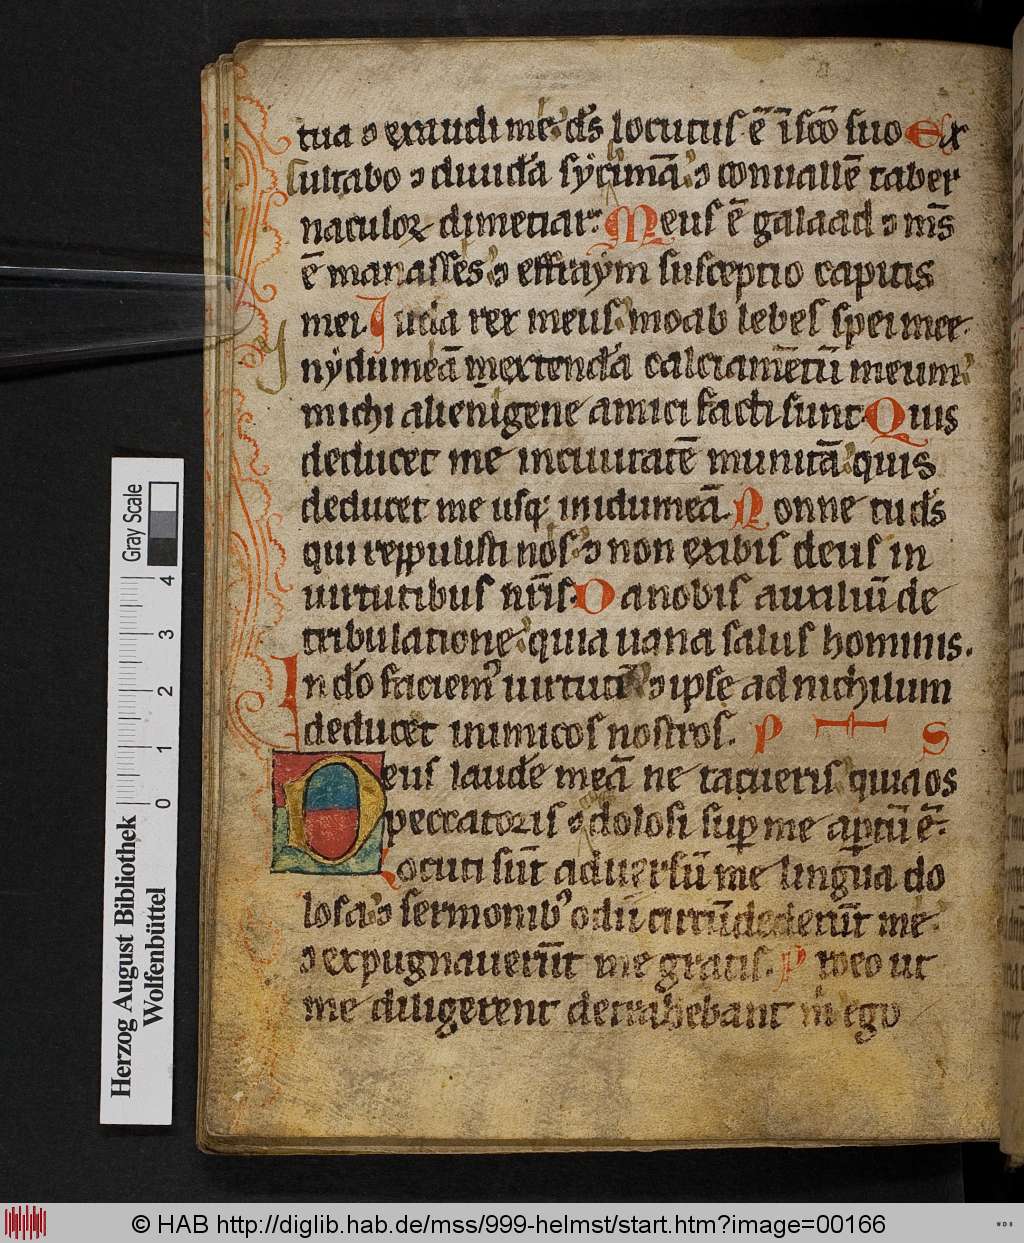 tua ⁊ exaudi me ds̄ locutus ē ī sc̄o suo Ex
ultabo ⁊ diuidā sẏcimā ⁊ conuallē taber
naculoꝝ dimetiar. Meus ē galaad ⁊ m̄s
ē manasses ⁊ effraẏm susceptio capitis
mei. Iuda rex meus moab lebes spei mee.
ẏn ẏdumeā extendā calciam̄tū meum
michi alienigene amici facti sunt. Quis
deducet me in ciuitatē munitā quis
deducet me usqꝫ in idumeā. Nonne tu ds̄
qui reppulisti nos ⁊ non exibis deus in
uirtutibus nr̄is. Da nobis auxiliū de
tribulatione quia uana salus hominis.
In dō faciemꝰ uirtutē ⁊ ipse ad nichilum
deducet inimicos nostros. P S
Deus laudē meā ne tacueris quia os
peccatoris ⁊ dolosi sup me aptū ē.
Locuti sūt aduersū me lingua do
losa ⁊ sermonibꝰ odii circūdederūt me
⁊ expugnauerūt me gratis. Pro eo ut
me diligerent detrahebant m̄ ego
Herzog August Bibliothek
Wolfenbüttel
0 1 2 3 4
Gray Scale
© HAB http://diglib.hab.de/mss/999-helmst/start.htm?image=00166